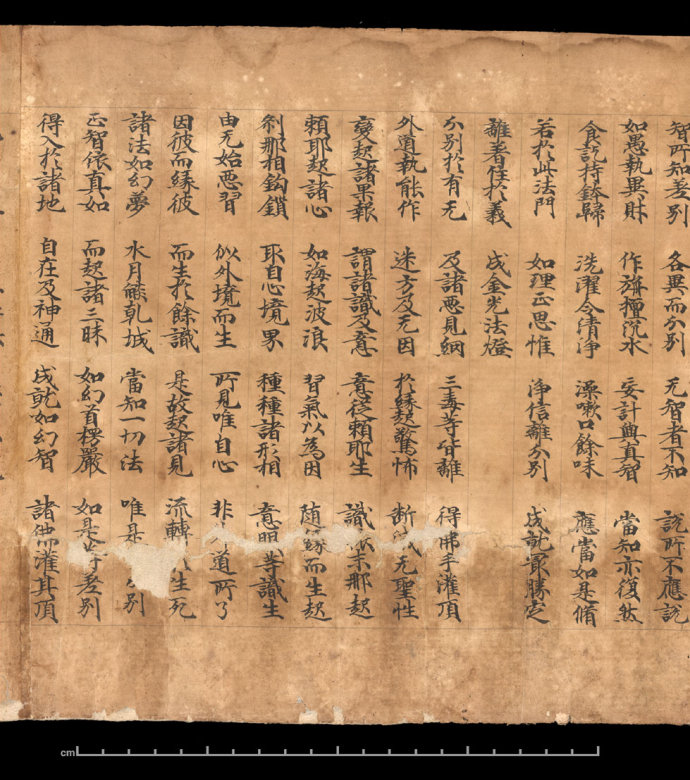 智所知差別 各異而分別 无智者不知 說所不應說
如愚執異財 作旃檀沉水 妄計與真智 當知亦復然
食訖持鉢歸 洗濯令清淨 澡漱口餘味 應當如是脩
若於此法門 如理正思惟 淨信離分別 成就最勝定
離著住於義 成金光法燈
分別於有无 及諸惡見網 三毒等皆離 得佛手灌頂
外道執能作 迷方及无因 於緣起驚怖 断滅无聖性
變起諸果報 謂諸識及意 意從賴耶生 識依末那起
賴耶起諸心 如海起波浪 習氣以為因 随緣而生起
刹那相鈎鎖 取自心境界 種種諸形相 意眼等識生
由无始惡習 似外境而生 所見唯自心 非道所了
因彼而緣彼 而生於餘識 是故起諸見 流轉生死
諸法如幻夢 水月焰乾城 當知一切法 唯是分別
正智依真如 而起諸三昧 如幻首楞嚴 如是等差別
得入於諸地 自在及神通 成就如幻智 諸佛灌其頂
cm